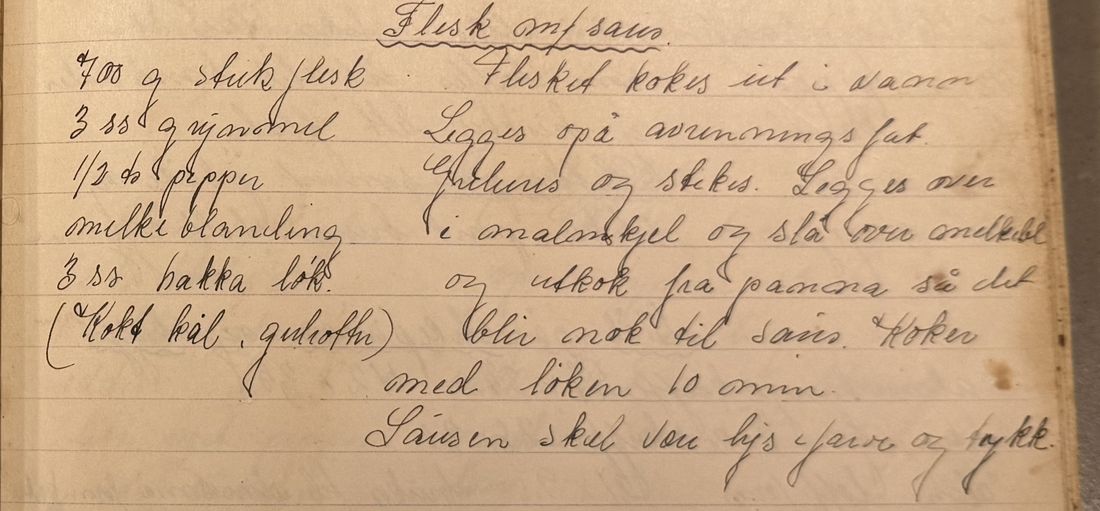 Flesk m/ saus.
700 g stek flesk
3 ss grynmel
1/2 ts pepper
melkeblanding
3 ss hakka løk.
(Kokt kål, gulrøtter)
Flesket kokes ut i vann
Legges opå avrennings fat.
og stekes. Legges over
i malmkjel og slå over melkebl
og utkok fra panna så det
blir nok til saus. Koker
med løken 10 min.
Sausen skal være lys i farve og tykk.